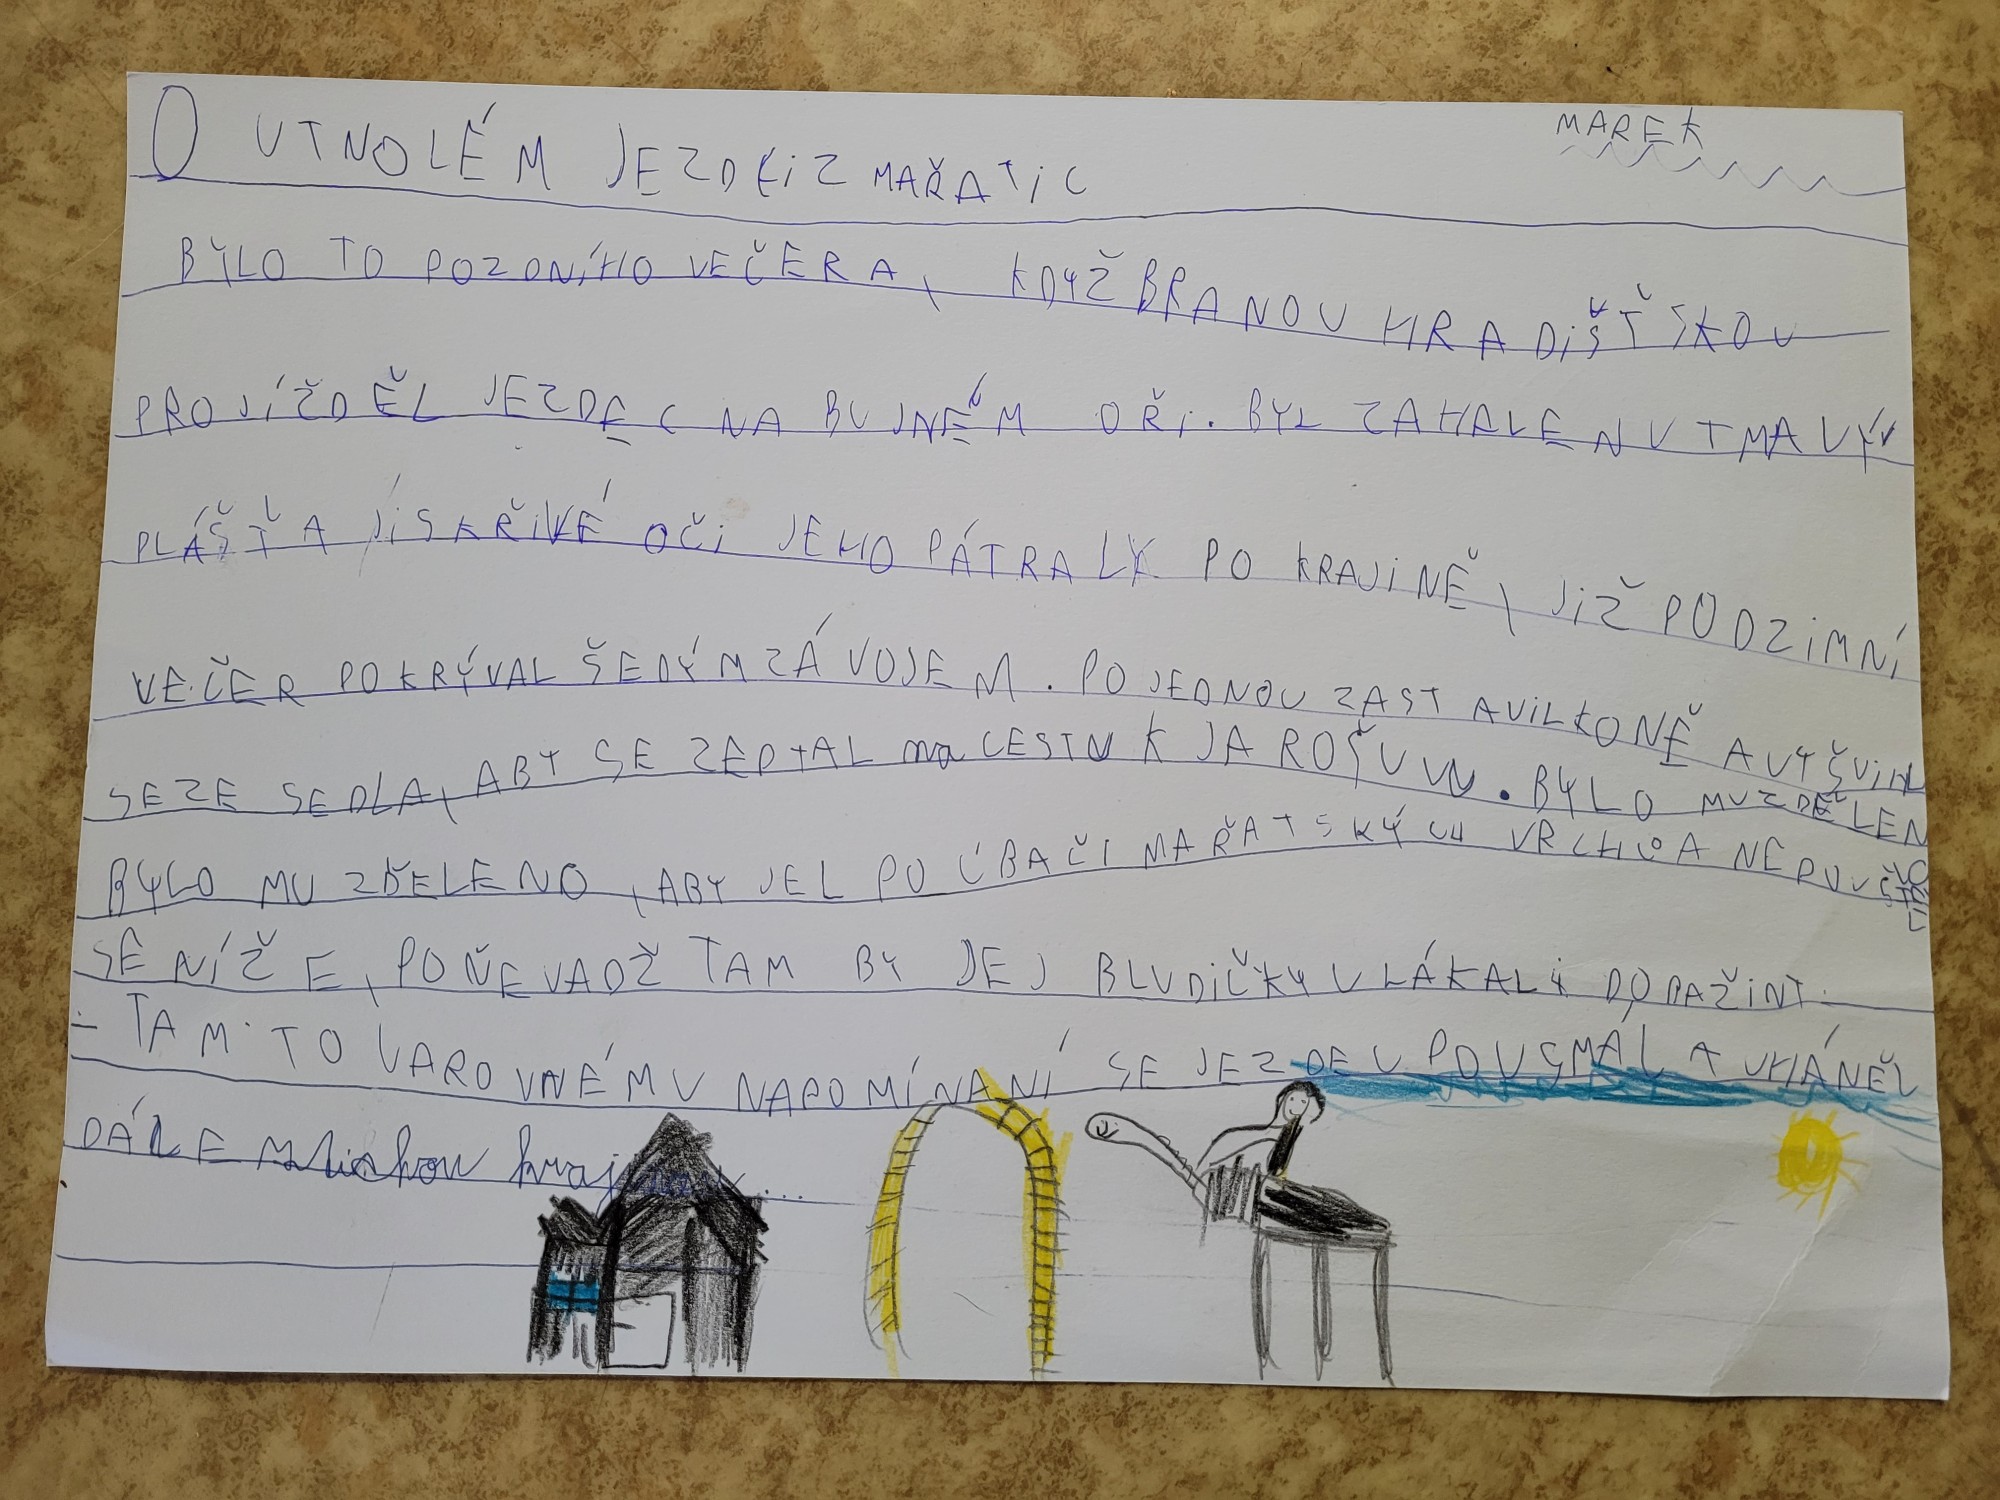 MAREK
O UTNOLÉM JEZDCI Z MAŘATIC
BYLO TO POZDNÍHO VEČERA, KDYŽ BRANOU HRADIŠŤSKOU
PROJÍŽDĚL JEZDEC NA BUJNÉM OŘI. BYL ZAHALEN V TMAVÝ
PLÁŠŤ A JISKŘIVÉ OČI JEHO PÁTRALY PO KRAJINĚ, JIŽ PODZIMNÍ
VEČER POKRÝVAL ŠEDÝM ZÁVOJEM. POJEDNOU ZASTAVIL KONĚ A VYŠVIHL
SE ZE SEDLA, ABY SE ZEPTAL na CESTU K JAROŠOVU. BYLO MU ZDĚLENO
BYLO MU ZDĚLENO, ABY JEL PO ÚBAČI MAŘATSKÝCH VRCHŮ A NEPOUŠTĚL
SE NÍŽE, POŇEVADŽ TAM BY JEJ BLUDIČKY VLÁKALY DO PAŽINT.
- TAMTO VAROVNÉMU NAPOMÍNANÍ SE JEZDEC POUSMÁL A UHÁNĚL
DÁLE